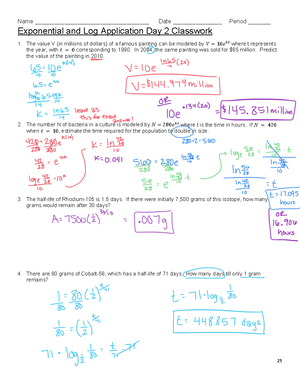 Name Date Period
Exponential and Log Application Day 2 Classwork
1. The value V (in millions of dollars) of a famous painting can be modeled by V = 10e^kt where t represents
the year, with t = 0 corresponding to 1990. In 2004 the same painting was sold for $65 million. Predict
the value of the painting in 2010
65 = 10e^k(14)
10 10
6.5 = e^14k
V = 10e
V = $144.979 million
leave as
this for exact
OR
10e = $145.851 million
2. The number N of bacteria in a culture is modeled by N = 280e^kt where t is the time in hours. If N = 420
when t = 10, estimate the time required for the population to double in size.
280·2 = 560
420 = 280e
280 280
k = 0.041
560 = 280e
280 280
= t
t = 17.095
hours
OR
16.906
hours
3. The half-life of Rhodium-105 is 1.5 days. If there were initially 7,500 grams of this isotope, how many
grams would remain after 30 days?
A = 7500(½)^30/1.5 = .007g
4. There are 80 grams of Cobalt-58, which has a half-life of 71 days. How many days till only 1 gram
remains?
1 = 80(½)^t/71
80 80
1/80 = (½)^t/71
71 · log½ 1/80 = t/71 · 71
t = 71·log½ 1/80
t = 448.857 days